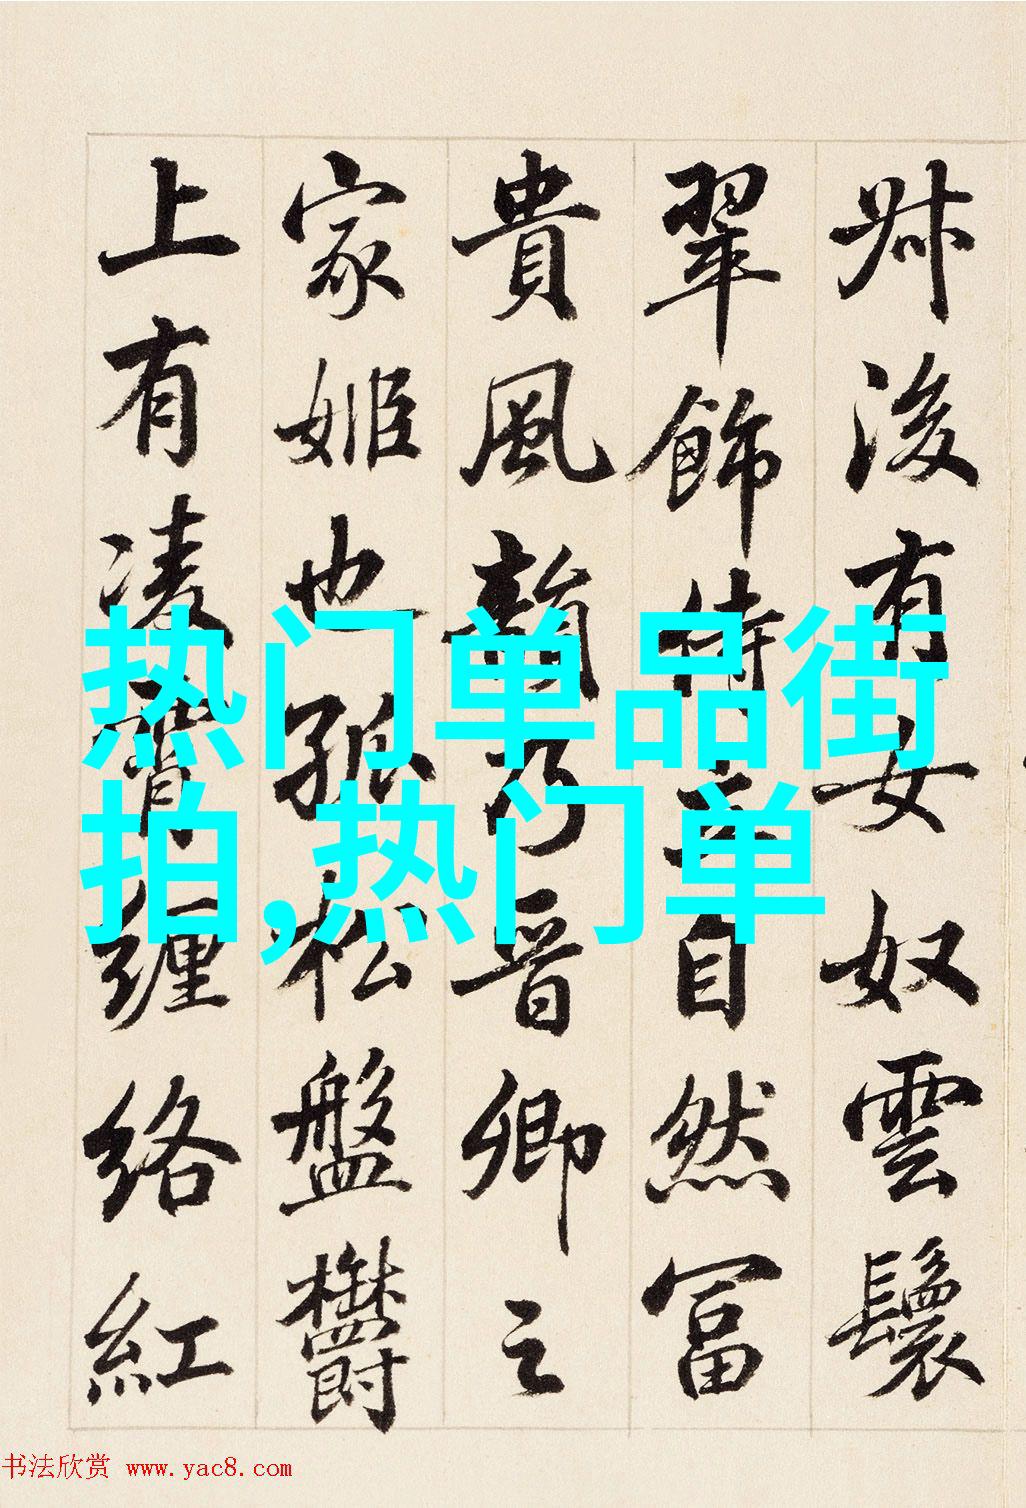 叔後有女奴雲鬟
翠飾侍立自然冨
貴風韻乃晉卿之
家姬也孤松盤欝
上有凌霄纏絡紅
热门单品街
拍,热门单
书法欣赏 www.yac8.com